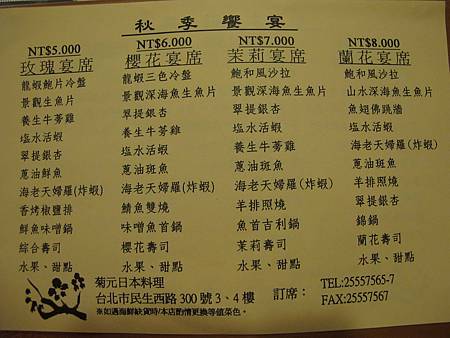 秋季饗宴
NT$5.000
玫瑰宴席
龍蝦鮑片冷盤
景觀生魚片
養生牛蒡雞
塩水活蝦
翠提銀杏
蔥油鮮魚
海老天婦羅(炸蝦)
香烤椒鹽排
鮮魚味噌鍋
綜合壽司
水果、甜點
NT$6.000
櫻花宴席
龍蝦三色冷盤
景觀深海魚生魚片
翠提銀杏
養生牛蒡雞
塩水活蝦
蔥油斑魚
海老天婦羅(炸蝦)
鯖魚雙燒
味噌魚首鍋
櫻花壽司
水果、甜點
NT$7.000
茉莉宴席
鮑和風沙拉
景觀深海魚生魚片
翠提銀杏
塩水活蝦
養生牛蒡雞
蔥油斑魚
海老天婦羅(炸蝦)
羊排照燒
魚首吉利鍋
茉莉壽司
水果、甜點
NT$8.000
蘭花宴席
鮑和風沙拉
山水深海魚生魚片
魚翅佛跳牆
塩水活蝦
蔥油斑魚
海老天婦羅(炸蝦)
羊排照燒
翠提銀杏
錦鍋
蘭花壽司
水果、甜點
菊元日本料理
台北市民生西路 300 號 3、4 樓
訂席：
TEL:25557565-7
FAX:25557567
※如遇海鮮缺貨時/本店酌情更換等值菜色。